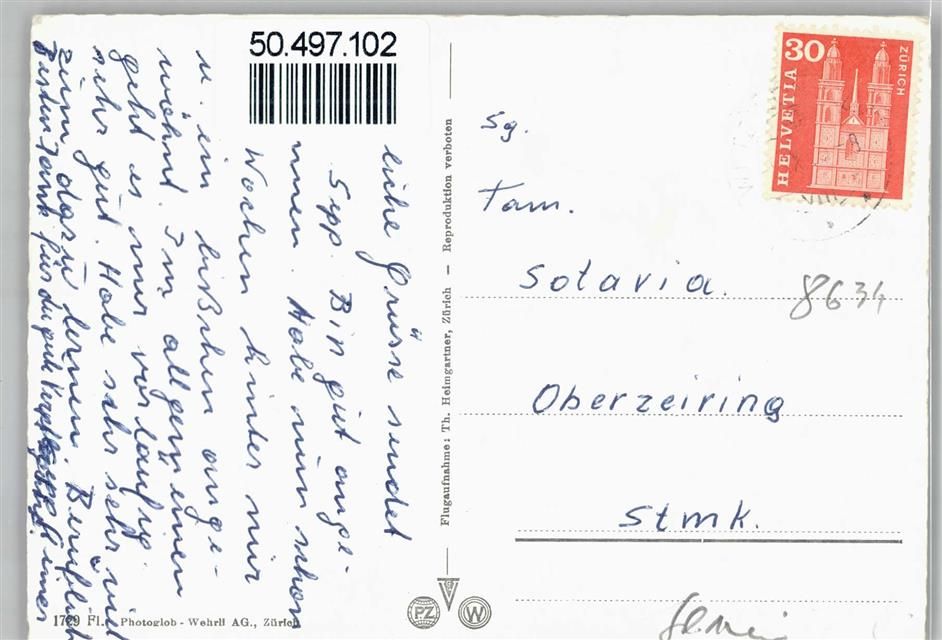 50.497.102
30
HELVETIA
ZÜRICH
liche Grüsse sendet
Sepp. Bin gut ange-
men. Habe nun schon
Wochen hinter mir
u. ein bißchen ange-
wöhnt. Im allgemeinen
geht es mir vorläufig
sehr gut. Habe sehr sehr viel
zum dazu lernen. Beruflich
Besten Dank für die gute
Sg.
Fam.
Solavia.
8634
Oberzeiring
Stmk.
Flugaufnahme: Th. Heimgartner, Zürich — Reproduktion verboten
PZ
W
1729 Fl. Photoglob - Wehrli AG., Zürich